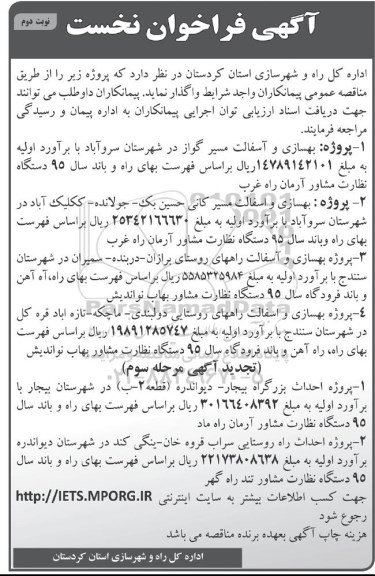 آگهی فراخوان نخست
نوبت دوم
اداره کل راه و شهرسازی استان کردستان در نظر دارد که پروژه زیر را از طریق
مناقصه عمومی پیمانکاران واجد شرایط واگذار نماید. پیمانکاران داوطلب می توانند
جهت دریافت اسناد ارزیابی توان اجرایی پیمانکاران به اداره پیمان و رسیدگی
مراجعه فرمایند.
۱-پروژه: بهسازی و آسفالت مسیر گواز در شهرستان سروآباد با برآورد اولیه
به مبلغ ۱۴۷۸۹۱۴۲۱۰۱ریال براساس فهرست بهای راه و باند سال ۹۵ دستگاه
نظارت مشاور آرمان راه غرب
۲- پروژه : بهسازی و آسفالت مسیر کانی حسین بک- جولانده- ککلیک آباد در
شهرستان سروآباد با برآورد اولیه به مبلغ ۲۵۳۴۲۱۶۶۶۳۰ ریال براساس فهرست
بهای راه وباند سال ۹۵ دستگاه نظارت مشاور آرمان راه غرب
۳-پروژه بهسازی و آسفالت راههای روستای برازان-دربنده- ضمیران در شهرستان
سنندج با برآورد اولیه به مبلغ ۵۵۸۵۳۲۵۹۸۳ ریال براساس فهرست بهای راه،راه آهن
و باند فرودگاه سال ۹۵ دستگاه نظارت مشاور بهاب نواندیش
۴-پروژه بهسازی و آسفالت راههای روستایی دولبندی- ماچکه-تازه اباد قره کل
در شهرستان سنندج با برآورد اولیه به مبلغ ۱۹۸۹۱۲۸۵۷۴۷ ریال براساس فهرست
بهای راه، راه آهن و باند فرودگاه سال ۹۵ دستگاه نظارت مشاور بهاب نواندیش
(تجدید آگهی مرحله سوم)
۱-پروژه احداث بزرگراه بیجار- دیواندره (قطعه۲-ب) در شهرستان بیجار با
برآورد اولیه به مبلغ ۳۰۱۶۶۴۰۸۳۹۲ ریال براساس فهرست بهای راه و باند سال
۹۵ دستگاه نظارت مشاور آرمان راه ماد
۲-پروژه احداث راه روستایی سراب قروه خان-ینگی کند در شهرستان دیواندره
برآورد اولیه به مبلغ ۲۲۱۷۳۸۰۸۶۳۸ ریال براساس فهرست بهای راه و باند سال
۹۵ دستگاه نظارت مشاور تند راه گهر
جهت کسب اطلاعات بیشتر به سایت اینترنتی http://IETS.MPORG.IR
رجوع شود
هزینه چاپ آگهی بعهده برنده مناقصه می باشد
اداره کل راه و شهرسازی استان کردستان